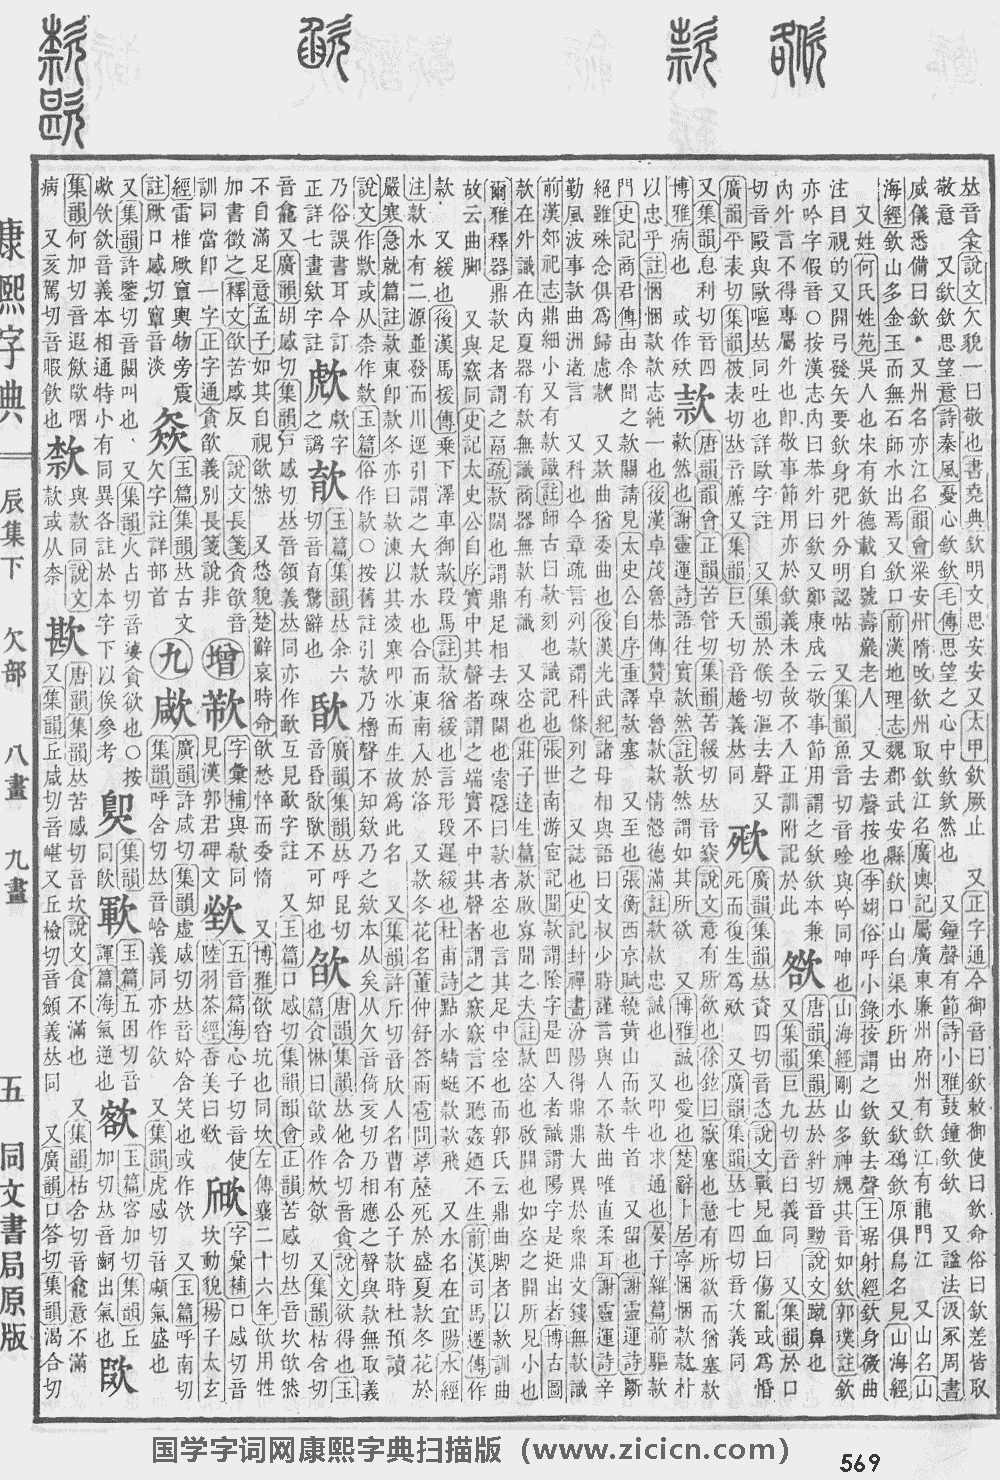 𠀤音㑒說文欠貌一曰敬也書堯典欽明文思安安又太甲欽厥止 又正字通今御音曰欽敕御使曰欽命俗曰欽差皆取
敬意 又欽欽思望意詩秦風憂心欽欽毛傳思望之心中欽欽然也 又鐘聲有節詩小雅鼓鐘欽欽 又諡法汲冢周書
威儀悉備曰欽 又州名亦江名韻會梁安州隋攺欽州取欽江名廣輿記屬廣東廉州府州有欽江有龍門江 又山名山
海經欽山多金玉而無石師水出焉又欽口前漢地理志魏郡武安縣欽口山白渠水所出 又欽䲹欽原俱鳥名見山海經
又姓何氏姓苑吳人也宋有欽德載自號壽巖老人 又去聲按也李翊俗呼小錄按謂之欽欽去聲王琚射經欽身微曲
注目視的又開弓發矢要欽身弝外分明認帖 又集韻魚音切音唫與吟同呻也山海經剛山多神其音如欽郭璞註欽
亦吟字假音○按漢志內曰恭外曰欽又鄭康成云敬事節用謂之欽欽本兼
內外言不得專屬外也卽敬事節用亦於欽義未全故不入正訓附記於此
唐韻集韻𠀤於糾切音黝說文蹴鼻也
又集韻巨九切音臼義同 又集韻於口
切音毆與歐嘔𠀤同吐也詳歐字註 又集韻於候切漚去聲
廣韻集韻𠀤資四切音恣說文戰見血曰傷亂或爲惛
死而後生爲㱞 又廣韻集韻𠀤七四切音次義同
又集韻息利切音四
博雅病也 或作㱞
款
唐韻韻會正韻苦管切集韻苦緩切𠀤音窾說文意有所欲也徐鉉曰窾塞也意有所欲而猶塞款
款然也謝靈運詩語往實款然註款然謂如其所欲 又博雅誠也愛也楚辭卜居寧悃悃款款朴
以忠乎註悃悃款款志純一也後漢卓茂魯恭傳贊卓魯款款情慤德滿註款款忠誠也 又叩也求通也晏子雜篇前驅款
門史記商君傳由余聞之款關請見太史公自序重譯款塞 又至也張衡西京賦繞黃山而款牛首 又留也謝靈運詩斷
絕雖殊念俱爲歸慮款 又款曲猶委曲也後漢光武紀諸母相與語曰文叔少時謹言與人不款曲唯直柔耳謝靈運詩辛
勤風波事款曲洲渚言 又科也今章疏言列款謂科條列之 又誌也史記封禪書汾陽得鼎鼎大異於衆鼎文鏤無款識
前漢郊祀志鼎細小又有款識註師古曰款刻也識記也張世南游宦記聞款謂陰字是凹入者識謂陽字是挺出者博古圖
款在外識在內夏器有款無識商器無款有識 又空也莊子達生篇款啟寡聞之夫註款空也啟開也如空之開所見小也
爾雅釋器鼎款足者謂之鬲疏款闊也謂鼎足相去疎闊也索隱曰款者空也言其足中空也而郭氏云鼎曲脚者以款訓曲
故云曲脚 又與窾同史記太史公自序實中其聲者謂之端實不中其聲者謂之窾窾言不聽姦廼不生前漢司馬遷傳作
款 又緩也後漢馬援傳乗下澤車御款段馬註款猶緩也言形段遲緩也杜甫詩點水蜻蜓款款飛 又水名在宜陽水經
注款水有二源並發而川逕引謂之大款水也合而東南入於洛 又款冬花名董仲舒答雨雹問葶藶死於盛夏款冬花於
嚴寒急就篇註款東卽款冬亦曰款凍以其凌寒叩冰而生故爲此名 又集韻許斤切音欣人名曹有公子款時杜預讀
說文作歀或从柰作𣤆玉篇俗作欵○按舊註引欵乃櫓聲不知欸乃之欸本从矣从欠音倚亥切乃相應之聲與款無取義
乃俗誤書耳今訂
正詳七畫欸字註
𣣓字
之譌
玉篇集韻𠀤余六
切音育驚辭也
廣韻集韻𠀤呼昆切
音昏歇不可知也
欿
唐韻集韻𠀤他含切音貪說文欲得也玉
篇貪惏曰欿或作欿 又集韻枯含切
音龕又廣韻胡感切集韻戶感切𠀤音頷義𠀤同亦作歁互見歁字註 又玉篇口感切集韻韻會正韻苦感切𠀤音坎欿然
不自滿足意孟子如其自視欿然 又愁貌楚辭哀時命欿愁悴而委惰 又博雅欿窞坑也同坎左傳襄二十六年欿用牲
加書徵之釋文欿苦感反 說文長箋貪欿音
訓同當卽一字正字通貪欿義別長箋說非
增
字彙補與欷同
見漢郭君碑文
五音篇海心子切音使
陸羽茶經香美曰
字彙補口感切音
坎動貌揚子太玄
經雷椎欿窞輿物旁震
註欿口感切窞音淡
玉篇集韻𠀤古文
欠字註詳部首
九
廣韻許咸切集韻虛咸切𠀤音妗含笑也或作欦 又玉篇呼南切
集韻呼含切𠀤音峆義同亦作欱 又集韻虎感切音顑氣盛也
又集韻許鑒切音闞叫也 又集韻火占切音貪欲也○按
歁欦欱音義本相通特小有同異各註於本字下以俟參考
集韻
同飮
玉篇五困切音
諢篇海氣逆也
玉篇客加切集韻丘
加切𠀤音齣出氣也
集韻何加切音遐歔欿咽
病 又亥駕切音暇飮也
與款同說文
款或从柰
歁
唐韻集韻𠀤苦感切音坎說文食不滿也 又集韻枯含切音龕意不滿
又集韻丘咸切音嵁又丘檢切音顩義𠀤同 又廣韻口答切集韻渴合切
康熙字典
辰集下 欠部 八畫 九畫
五 同文書局原版
国学字词网康熙字典扫描版（www.zicicn.com）
569